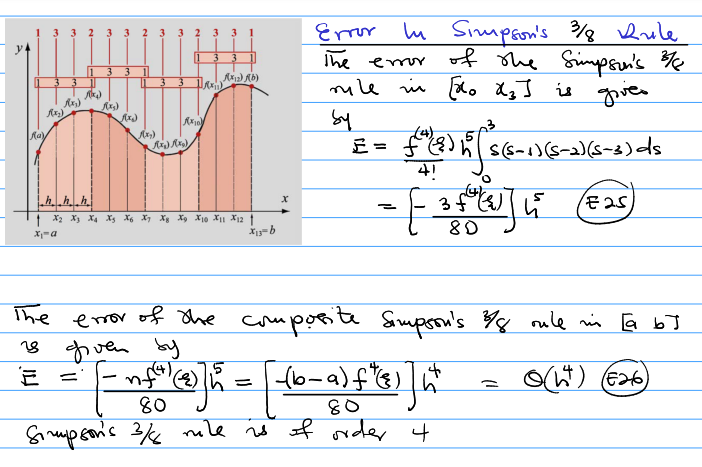 1 3 3 2 3 3 2 3 3 2 3 3 1
1 3 3
1 3 3 1
1 3 3 1
1 3 3 1
y
f(a)
f(x₂)
f(x₃)
f(x₄)
f(x₅)
f(x₆)
f(x₇)
f(x₈) f(x₉)
f(x₁₀)
f(x₁₁)
f(x₁₂) f(b)
h h h
x
x₂ x₃ x₄ x₅ x₆ x₇ x₈ x₉ x₁₀ x₁₁ x₁₂
x₁=a
x₁₃=b
Error in Simpson's 3/8 Rule
The error of the Simpson's 3/8
rule in [x₀ x₃] is given
by
E = f⁽⁴⁾(ξ)/4! h⁵ ∫₀³ s(s-1)(s-2)(s-3) ds
= [- 3f⁽⁴⁾(ξ)/80] h⁵ (E25)
The error of the composite Simpson's 3/8 rule in [a b]
is given by
E = [-nf⁽⁴⁾(ξ)/80] h⁵ = [-(b-a)f⁴(ξ)/80] h⁴ = O(h⁴) (E26)
Simpson's 3/8 rule is of order 4